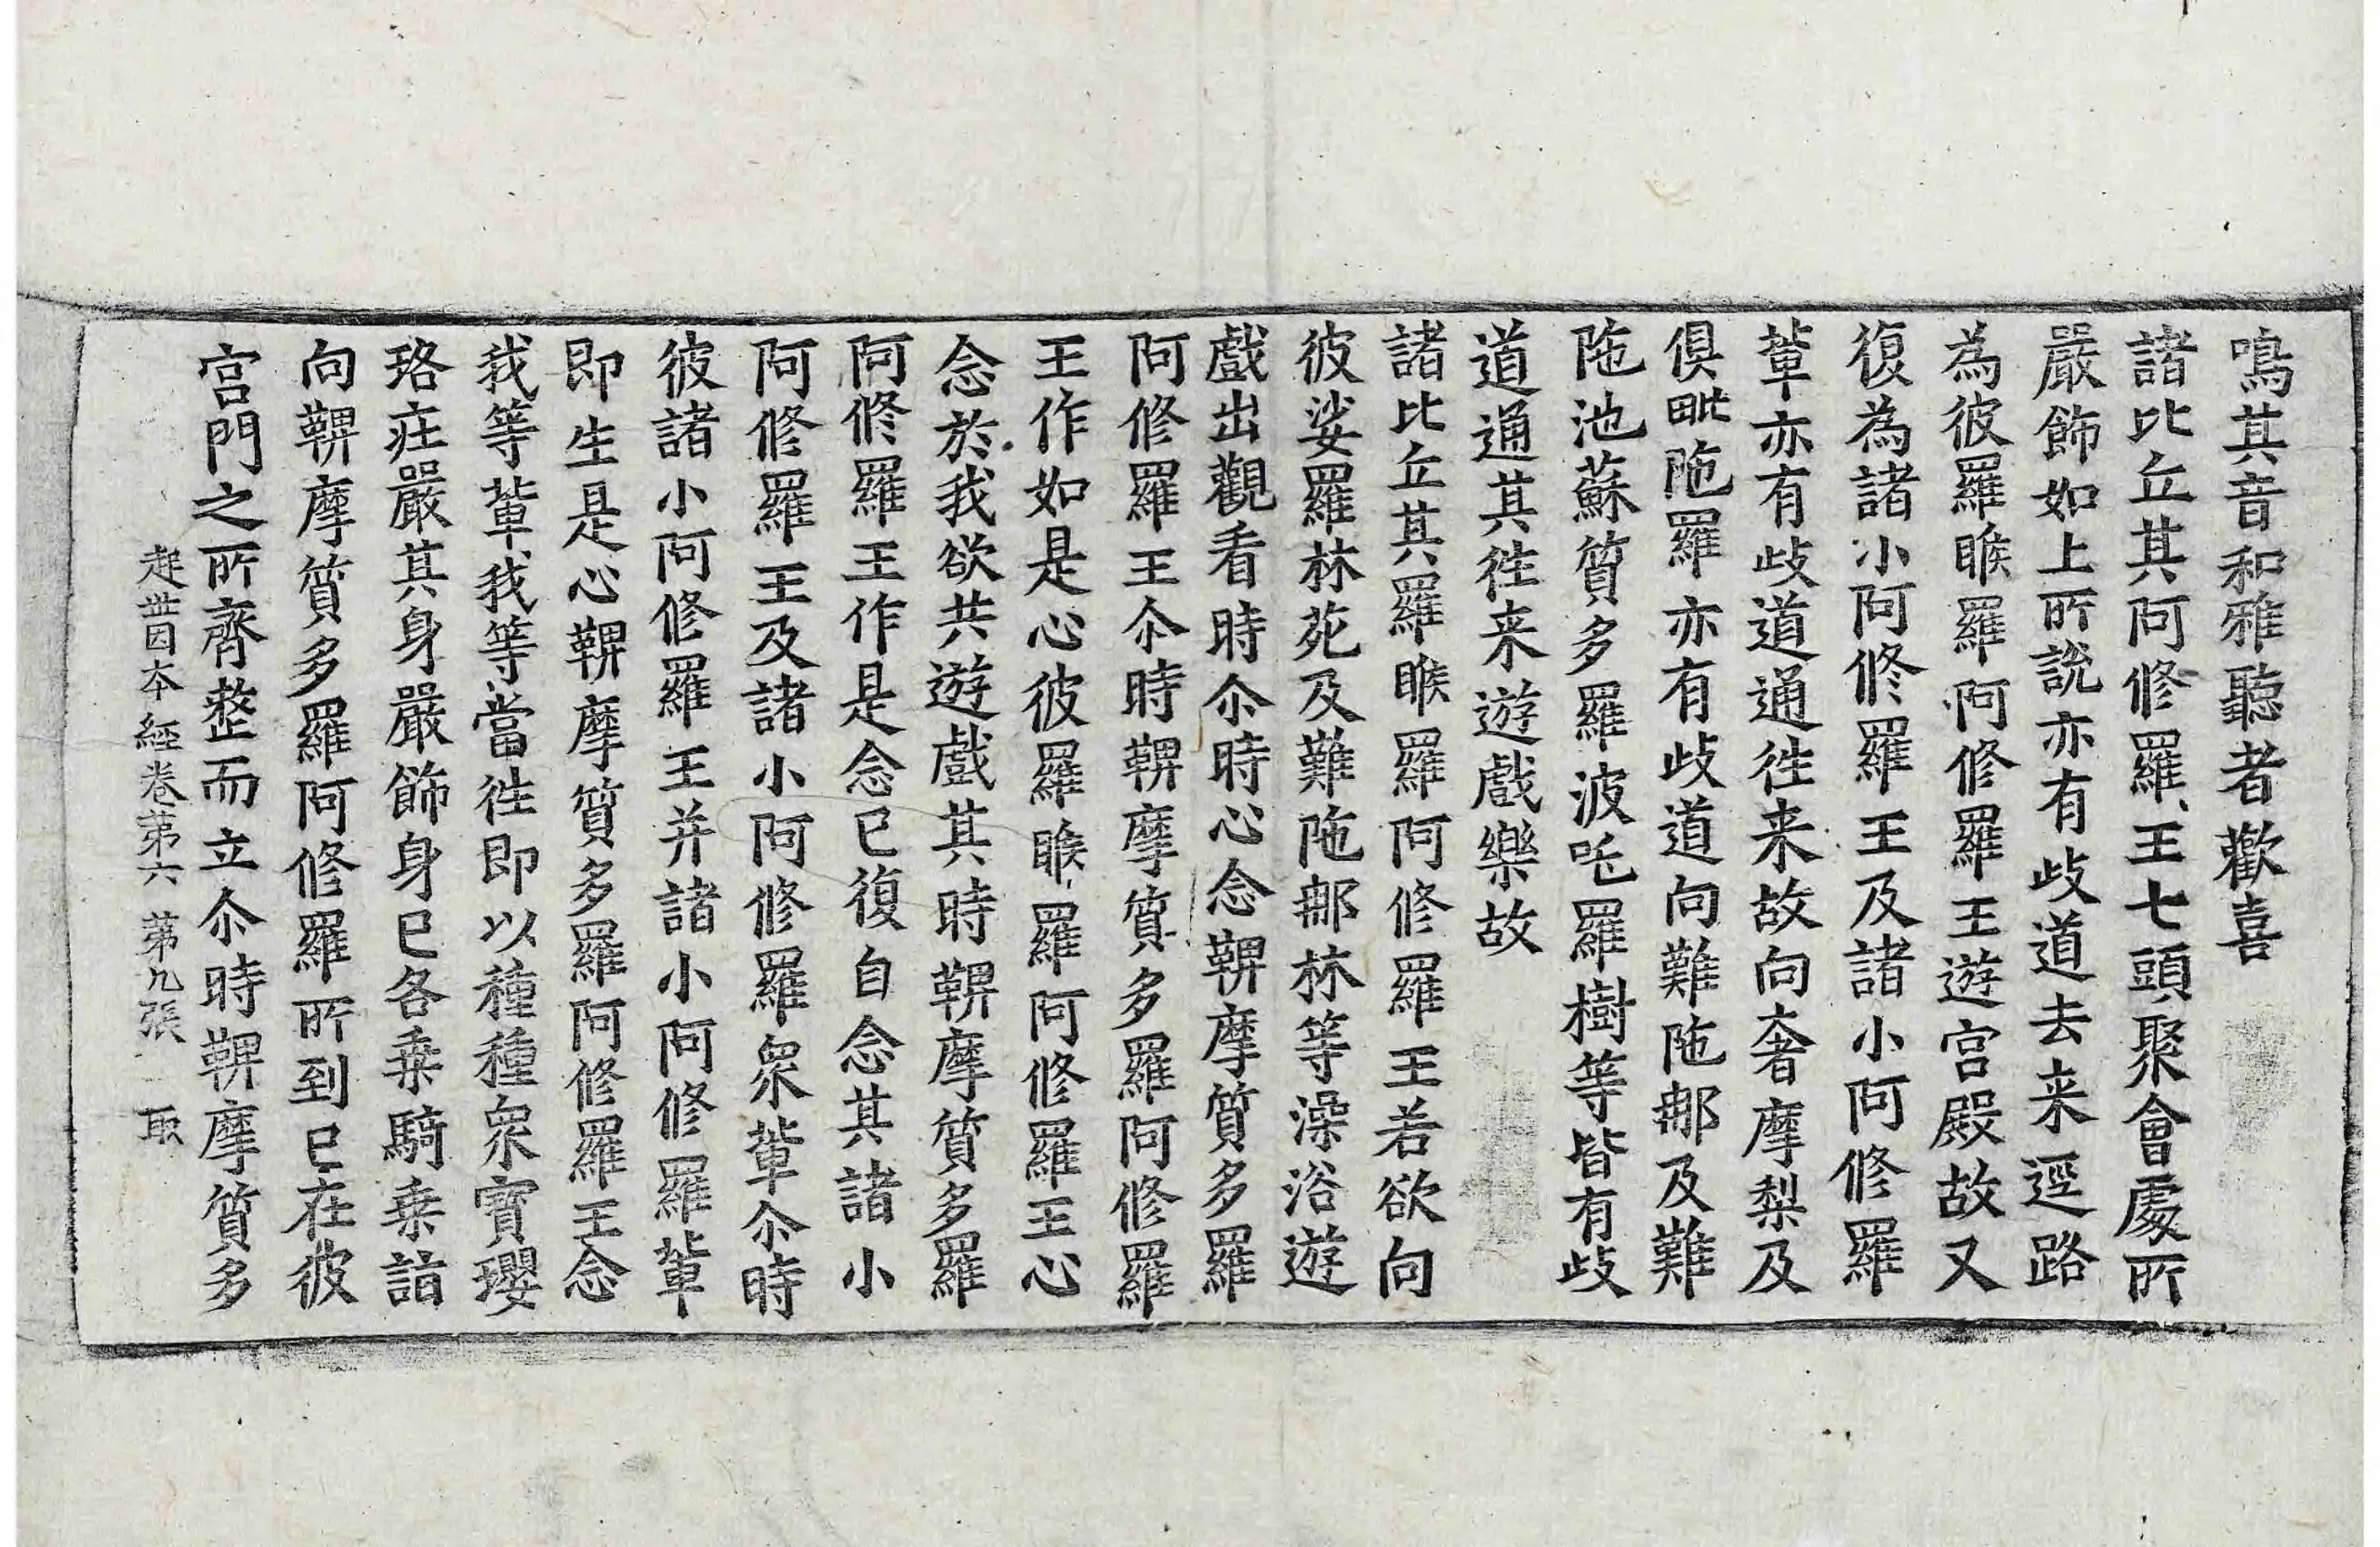 鳴其音和雅聽者歡喜
諸比丘其阿修羅王七頭聚會處所
嚴飾如上所說亦有歧道去来逕路
為彼羅睺羅阿修羅王遊宮殿故又
復為諸小阿修羅王及諸小阿修羅
輩亦有歧道通徃来故向奢摩梨及
俱毗陁羅亦有歧道向難陁那及難
陁池蘇質多羅波吒羅樹等皆有歧
道通其徃来遊戲樂故
諸比丘其羅睺羅阿修羅王若欲向
彼娑羅林苑及難陁那林等澡浴遊
戲出觀看時尒時心念鞞摩質多羅
阿修羅王尒時鞞摩質多羅阿修羅
王作如是心彼羅睺羅阿修羅王心
念於我欲共遊戲其時鞞摩質多羅
阿修羅王作是念已復自念其諸小
阿修羅王及諸小阿修羅眾輩尒時
彼諸小阿修羅王并諸小阿修羅輩
即生是心鞞摩質多羅阿修羅王念
我等輩我等當徃即以種種眾寶瓔
珞莊嚴其身嚴飾身已各乗騎乗詣
向鞞摩質多羅阿修羅所到已在彼
宮門之所齊整而立尒時鞞摩質多
起世因本經卷第六 第九張 取